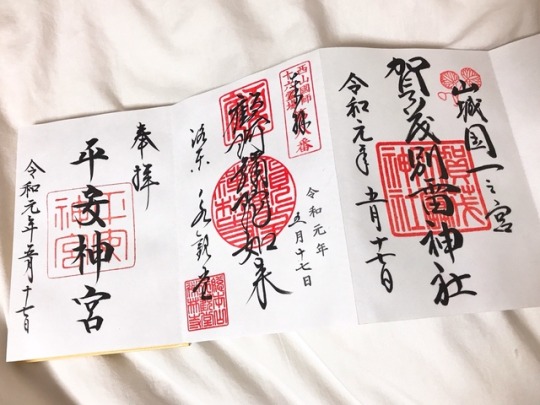 山城国一之宮
賀茂別雷神社
令和元年 五月十七日
令和元年
五月十七日
奉拝
如来
洛東 永観堂
奉拝
平安神宮
平安神宮
令和元年 五月十七日